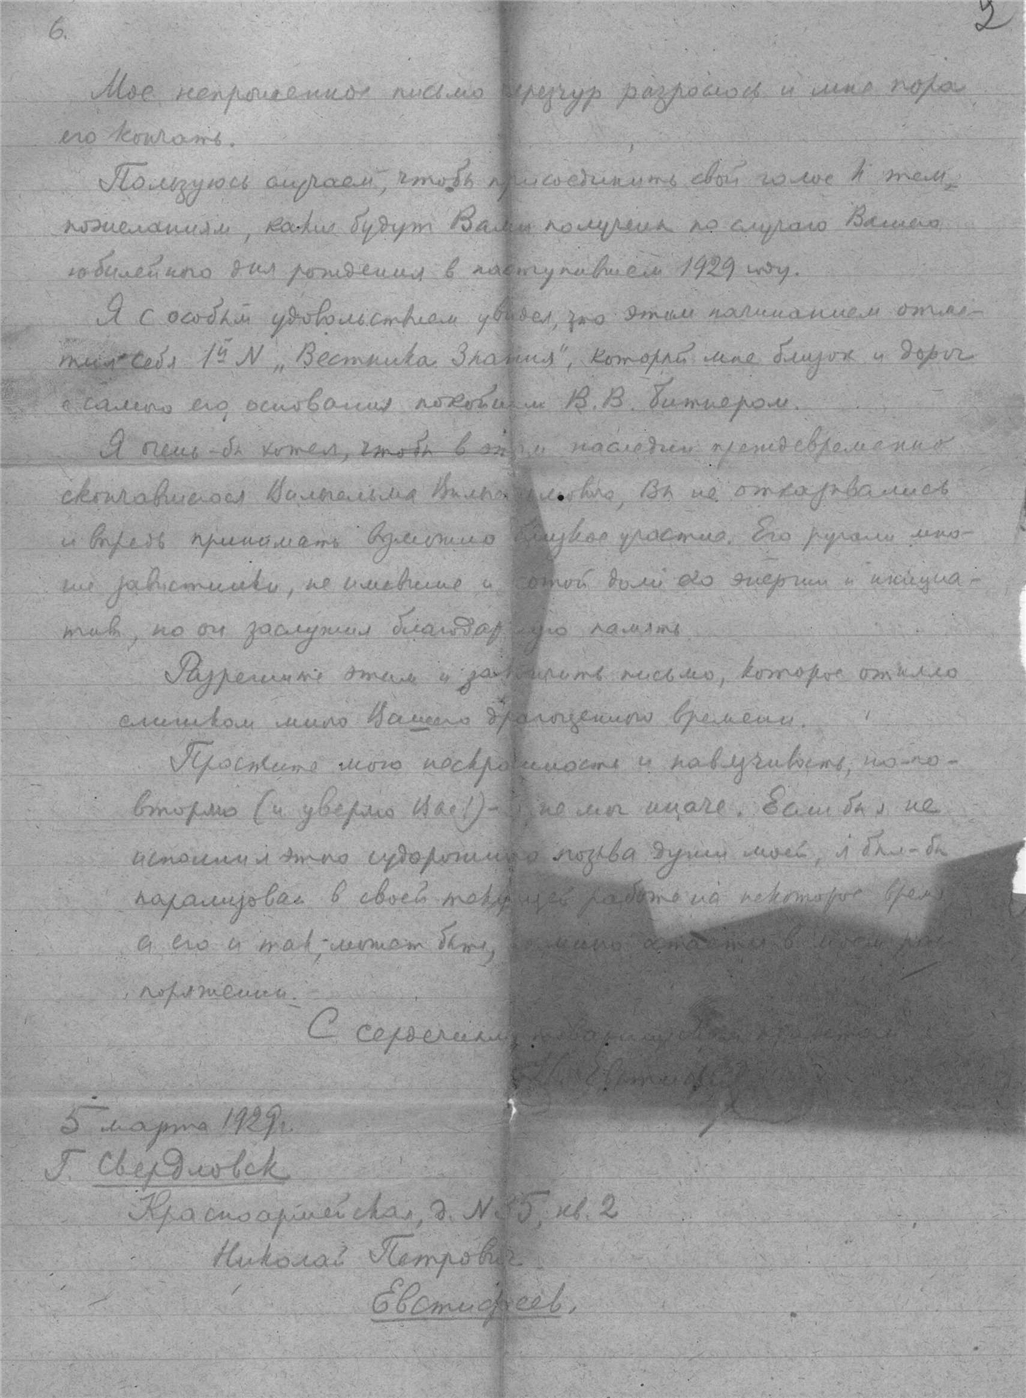 6.
2
Мое непрошенное письмо чрезчур разрослось и мне пора
его кончать.
Пользуюсь случаем, чтобы присоединить свой голос к тем
пожеланиям, какие будут Вами получены по случаю Вашего
юбилейного дня рождения в наступившем 1929 году.
Я с особым удовольствием увидел, что этим начинанием отме-
тил себя 1й N „Вестника Знания", который мне близок и дорог
с самого его основания покойным В. В. Битнером.
Я очень-бы хотел, чтобы в этом наследии преждевременно
скончавшегося Вильгельма Вильгельмовича, Вы не отказывались
и впредь принимать возможно близкое участие. Его ругали мно-
гие завистники, не имевшие и сотой доли его энергии и инициа-
тив, но он заслужил благодарную память
Разрешите этим и закончить письмо, которое отняло
слишком много Вашего драгоценного времени.
Простите мою нескромность и навязчивость, но по-
вторяю (и уверяю Вас!) - я не мог иначе. Если бы я не
исполнил этого судорожного позыва души моей, я был-бы
парализован в своей текущей работе на некоторое время
а его и так, может быть, немного остается в моем рас-
поряжении.
С сердечным товарищеским приветом
Н. Евстифеев
5 марта 1929г.
Г. Свердловск
Красноармейская, д. N 55, кв. 2
Николай Петрович
Евстифеев.